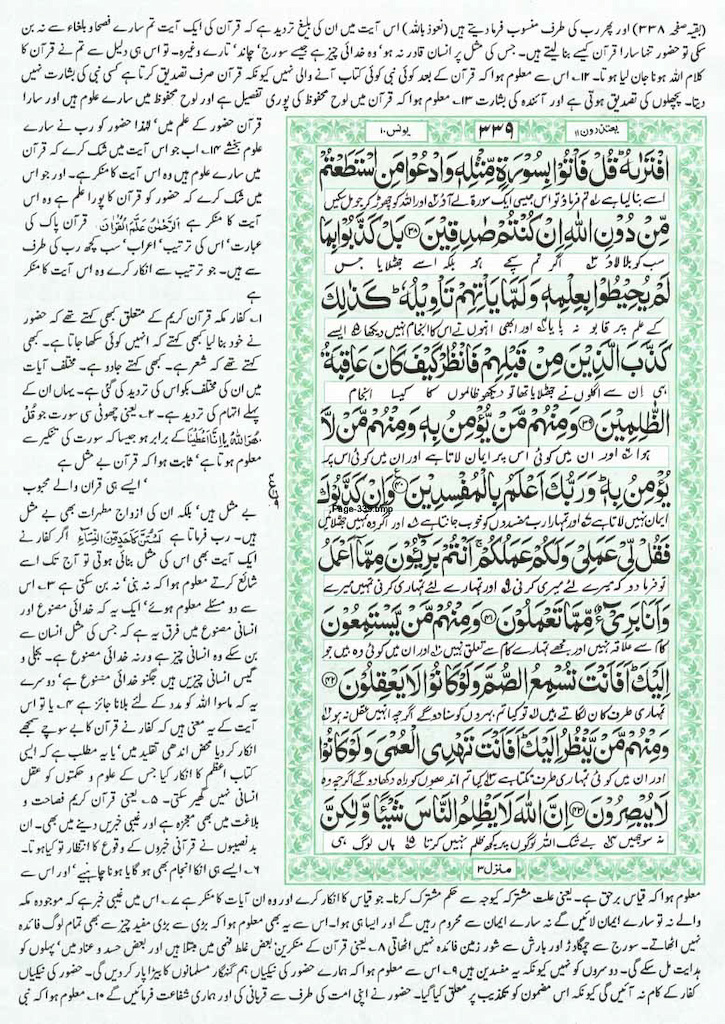 (بقیہ صفحہ ۳۳۸) اور پھر رب کی طرف منسوب فرما دیتے ہیں (نعوذ باللہ) اس آیت میں ان کی بلیغ تردید ہے کہ قرآن کی ایک آیت تم سارے فصحاو بلغاء سے نہ بن
سکی تو حضور تنہا سارا قرآن کیسے بنا لیتے ہیں۔ جس کی مثل پر انسان قادر نہ ہو' وہ خدائی چیز ہے جیسے سورج' چاند' تارے وغیرہ۔ تو اسی دلیل سے تم نے قرآن کا
کلام اللہ ہونا جان لیا ہوتا۔ ۱۲۔ اس سے معلوم ہوا کہ قرآن کے بعد کوئی نبی کوئی کتاب آنے والی نہیں کیونکہ قرآن صرف تصدیق کرتا ہے کسی نبی کی بشارت نہیں
دیتا۔ پچھلوں کی تصدیق ہوتی ہے اور آئندہ کی بشارت ۱۳۔ معلوم ہوا کہ قرآن میں لوح محفوظ کی پوری تفصیل ہے اور لوح محفوظ میں سارے علوم ہیں اور سارا
قرآن حضور کے علم میں' لہٰذا حضور کو رب نے سارے
علوم بخشے ۱۴۔ اب جو اس میں شک کرے کہ قرآن
میں سارے علوم ہیں وہ اس آیت کا منکر ہے۔ اور جو اس
میں شک کرے کہ حضور کو قرآن کا پورا علم ہے وہ اس
آیت کا منکر ہے اَلرَّحْمٰنُ عَلَّمَ الْقُرْاٰنَ قرآن پاک کی
عبارت' اس کی ترتیب' اعراب' سب کچھ رب کی طرف
سے ہیں۔ جو ترتیب سے انکار کرے وہ اس آیت کا منکر
ہے
۱۔ کفار مکہ قرآن کریم کے متعلق کبھی کہتے تھے کہ حضور
نے خود بنا لیا کبھی کہتے کہ انہیں کوئی سکھا جاتا ہے۔ کبھی
کہتے تھے کہ شعر ہے۔ کبھی کہتے جادو ہے۔ مختلف آیات
میں ان کی مختلف بکواس کی تردید کی گئی ہے۔ یہاں ان کے
پہلے اتہام کی تردید ہے۔ ۲۔ یعنی چھوٹی سی سورت جو قُلْ
هُوَ اللّٰهُ یا اِنَّا اَعْطَیْنَا کے برابر ہو جیسا کہ سورت کی تنکیر سے
معلوم ہوتا ہے' ثابت ہوا کہ قرآن بے مثل ہے
' ایسے ہی قرآن والے محبوب
بے مثل ہیں' بلکہ ان کی ازواج مطہرات بھی بے مثل
ہیں۔ رب فرماتا ہے لَسْتُنَّ كَاَحَدٍ مِّنَ النِّسَآءِ اگر کفار نے
ایک آیت بھی اس کی مثل بنائی ہوتی تو آج تک اسے
شائع کرتے معلوم ہوا کہ نہ بنی' نہ بن سکتی ہے ۳۔ اس
سے دو مسئلے معلوم ہوئے' ایک یہ کہ خدائی مصنوع اور
انسانی مصنوع میں فرق یہ ہے کہ جس کی مثل انسان سے
بن سکے وہ انسانی چیز ہے ورنہ خدائی مصنوع ہے۔ بجلی و
گیس انسانی چیزیں ہیں جگنو خدائی مصنوع ہے' دوسرے
یہ کہ ماسوا اللہ کو مدد کے لئے بلانا جائز ہے ۴۔ یا تو اس
آیت کے یہ معنی ہیں کہ کفار نے قرآن کا بے سوچے سمجھے
انکار کر دیا محض اندھی تقلید میں' یا یہ مطلب ہے کہ ایسی
کتاب اعظم کا انکار کیا جس کے علوم و حکمتوں کو عقل
انسانی نہیں گھیر سکتی۔ ۵۔ یعنی قرآن کریم فصاحت و
بلاغت میں بھی معجزہ ہے اور غیبی خبریں دینے میں بھی۔ ان
بد نصیبوں نے قرآنی خبروں کے وقوع کا انتظار تو کیا ہوتا۔
۶۔ ایسے ہی انکا انجام بھی ہو گیا ہونا چاہیے' اور اس سے
یعتذرون ۱۱
۳۳۹
یونس ۱۰
افْتَرٰىهُ ؕ قُلْ فَاْتُوْا بِسُوْرَةٍ مِّثْلِهٖ وَادْعُوْا مَنِ اسْتَطَعْتُمْ
اسے بنا لیا ہے تم فرماؤ تو اس جیسی ایک سورۃ لے آؤ اور اللہ کو چھوڑ کر جو مل سکیں
مِّنْ دُوْنِ اللّٰهِ اِنْ كُنْتُمْ صٰدِقِیْنَ ﴿۳۸﴾ بَلْ كَذَّبُوْا بِمَا
سب کو بلا لاؤ اگر تم سچے ہو بلکہ اسے جھٹلایا جس
لَمْ یُحِیْطُوْا بِعِلْمِهٖ وَلَمَّا یَاْتِهِمْ تَاْوِیْلُهٗ ؕ كَذٰلِكَ
کے علم پر قابو نہ پایا اور ابھی انہوں نے اس کا انجام نہیں دیکھا ایسے
كَذَّبَ الَّذِیْنَ مِنْ قَبْلِهِمْ فَانْظُرْ كَیْفَ كَانَ عَاقِبَةُ
ہی ان سے اگلوں نے جھٹلایا تھا تو دیکھو ظالموں کا کیسا انجام
الظّٰلِمِیْنَ ﴿۳۹﴾ وَمِنْهُمْ مَّنْ یُّؤْمِنُ بِهٖ وَمِنْهُمْ مَّنْ لَّا
ہوا اور ان میں کوئی اس پر ایمان لاتا ہے اور ان میں کوئی اس پر
یُؤْمِنُ بِهٖ ؕ وَرَبُّكَ اَعْلَمُ بِالْمُفْسِدِیْنَ ﴿۴۰﴾ وَاِنْ كَذَّبُوْكَ
ایمان نہیں لاتا ہے اور تمہارا رب مفسدوں کو خوب جانتا ہے اور اگر وہ تمہیں جھٹلائیں
Page-339.bmp
فَقُلْ لِّیْ عَمَلِیْ وَلَكُمْ عَمَلُكُمْ ۚ اَنْتُمْ بَرِیْٓـُٔوْنَ مِمَّاۤ اَعْمَلُ
تو فرما دو کہ میرے لئے میری کرنی اور تمہارے لئے تمہاری کرنی تمہیں میرے
وَاَنَا بَرِیْٓءٌ مِّمَّا تَعْمَلُوْنَ ﴿۴۱﴾ وَمِنْهُمْ مَّنْ یَّسْتَمِعُوْنَ
کام سے علاقہ نہیں اور مجھے تمہارے کام سے تعلق نہیں اور ان میں کوئی وہ ہیں جو
اِلَیْكَ ؕ اَفَاَنْتَ تُسْمِعُ الصُّمَّ وَلَوْ كَانُوْا لَا یَعْقِلُوْنَ ﴿۴۲﴾
تمہاری طرف کان لگاتے ہیں تو کیا تم بہروں کو سنا دو گے اگرچہ انہیں عقل نہ ہو
وَمِنْهُمْ مَّنْ یَّنْظُرُ اِلَیْكَ ؕ اَفَاَنْتَ تَهْدِی الْعُمْیَ وَلَوْ كَانُوْا
اور ان میں کوئی تمہاری طرف تکتا ہے کیا تم اندھوں کو راہ دکھا دو گے اگرچہ وہ
لَا یُبْصِرُوْنَ ﴿۴۳﴾ اِنَّ اللّٰهَ لَا یَظْلِمُ النَّاسَ شَیْـًٔا وَّلٰكِنَّ
نہ سوجھیں بے شک اللہ لوگوں پر کچھ ظلم نہیں کرتا ہاں لوگ ہی
منزل ۳
معلوم ہوا کہ قیاس برحق ہے۔ یعنی علت مشترکہ کیوجہ سے حکم مشترک کرنا۔ جو قیاس کا انکار کرے اور وہ ان آیات کا منکر ہے ۷۔ اس میں غیبی خبر ہے کہ موجودہ مکہ
والے نہ تو سارے ایمان لائیں گے نہ سارے ایمان سے محروم رہیں گے اور ایسا ہی ہوا۔ اس سے یہ بھی معلوم ہوا کہ بڑی سے بڑی مفید چیز سے بھی تمام لوگ فائدہ
نہیں اٹھاتے۔ سورج سے چمگادڑ اور بارش سے شور زمین فائدہ نہیں اٹھاتی ۸۔ یعنی قرآن کے منکرین بعض غلط فہمی میں مبتلا ہیں اور بعض حسد و عناد میں' پہلوں کو
ہدایت مل سکے گی۔ دوسروں کو نہیں کیونکہ یہ مفسدین ہیں ۹۔ اس سے معلوم ہوا کہ ہمارے حضور کی نیکیاں ہم گنہگار مسلمانوں کا بیڑا پار کر دیں گی۔ حضور کی نیکیاں
کفار کے کام نہ آئیں گی کیونکہ اس مضمون کو تکذیب پر معلق کیا گیا۔ حضور نے اپنی امت کی طرف سے قربانی کی اور ہماری شفاعت فرمائیں گے ۱۰۔ معلوم ہوا کہ نبی